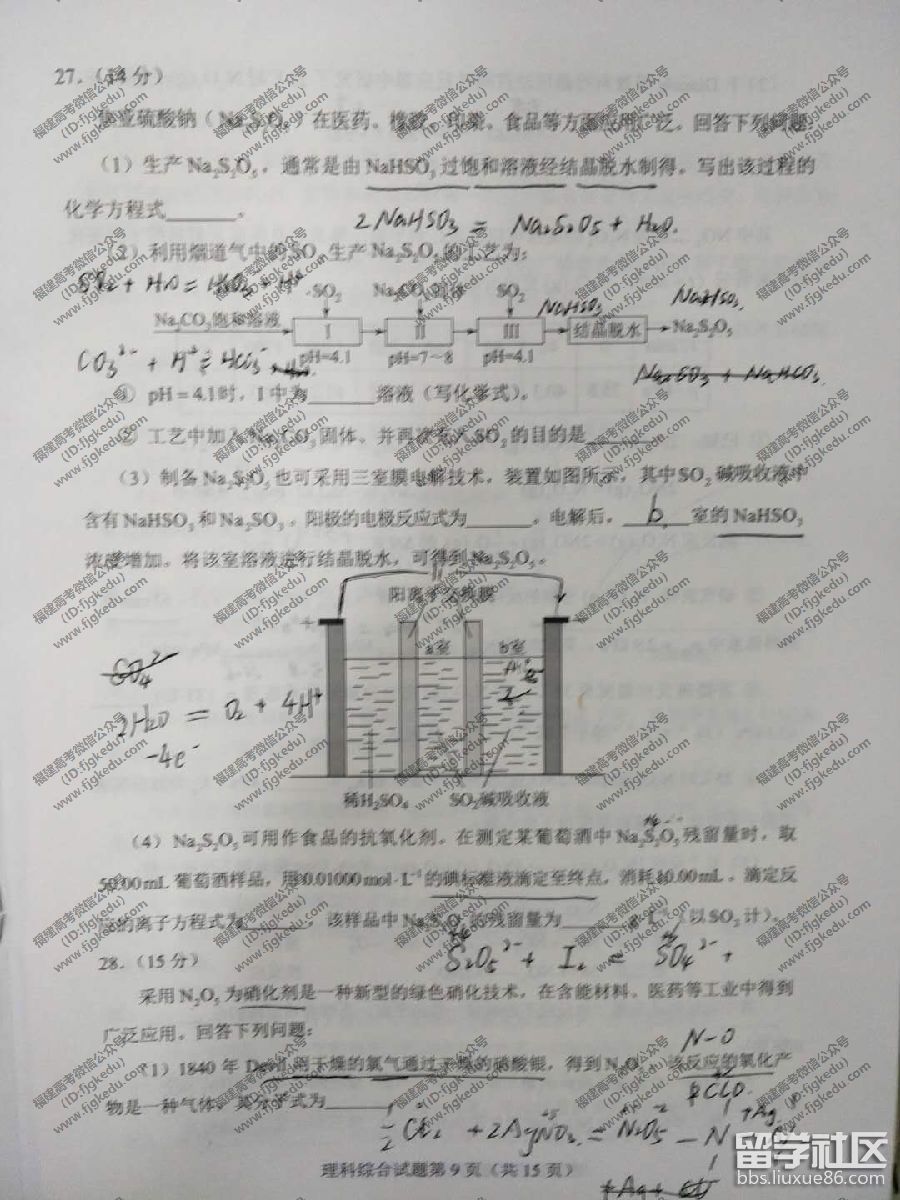 27.（14 分）
焦亚硫酸钠（Na₂S₂O₅）在医药、橡胶、印染、食品等方面应用广泛。回答下列问题：
（1）生产 Na₂S₂O₅，通常是由 NaHSO₃ 过饱和溶液经结晶脱水制得。写出该过程的
化学方程式______。
2NaHSO₃ = Na₂S₂O₅ + H₂O.
（2）利用烟道气中的SO₂生产Na₂S₂O₅的工艺为：
SO₂ Na₂CO₃固体 SO₂ NaHSO₃ NaHSO₃
Na₂CO₃饱和溶液 I II III 结晶脱水 Na₂S₂O₅
pH=4.1 pH=7~8 pH=4.1
① pH = 4.1时，I 中为______溶液（写化学式）。
② 工艺中加入Na₂CO₃固体、并再次充入SO₂的目的是______。
（3）制备 Na₂S₂O₅ 也可采用三室膜电解技术，装置如图所示，其中SO₂ 碱吸收液中
含有NaHSO₃ 和 Na₂SO₃。阳极的电极反应式为______。电解后，b室的 NaHSO₃
浓度增加。将该室溶液进行结晶脱水，可得到Na₂S₂O₅。
阳离子交换膜
a室 b室
SO₄²⁻
2H₂O = O₂ + 4H⁺
-4e⁻
稀H₂SO₄ SO₂碱吸收液
（4）Na₂S₂O₅ 可用作食品的抗氧化剂。在测定某葡萄酒中 Na₂S₂O₅ 残留量时，取
50.00 mL 葡萄酒样品，用0.01000 mol·L⁻¹的碘标准液滴定至终点，消耗10.00 mL。滴定反
应的离子方程式为______，该样品中Na₂S₂O₅的残留量为______g·L⁻¹（以SO₂计）。
S₂O₅²⁻ + I₂ = SO₄²⁻ +
28.（15 分）
采用 N₂O₅ 为硝化剂是一种新型的绿色硝化技术，在含能材料、医药等工业中得到
广泛应用。回答下列问题：
N-O
（1）1840 年 Devil 用干燥的氯气通过干燥的硝酸银，得到 N₂O₅。该反应的氧化产
物是一种气体，其分子式为______。
理科综合试题第 9 页（共 15 页）
福建高考微信公众号
(ID:fjgkedu)
www.fjgkedu.com
留学社区
bbs.liuxue86.com